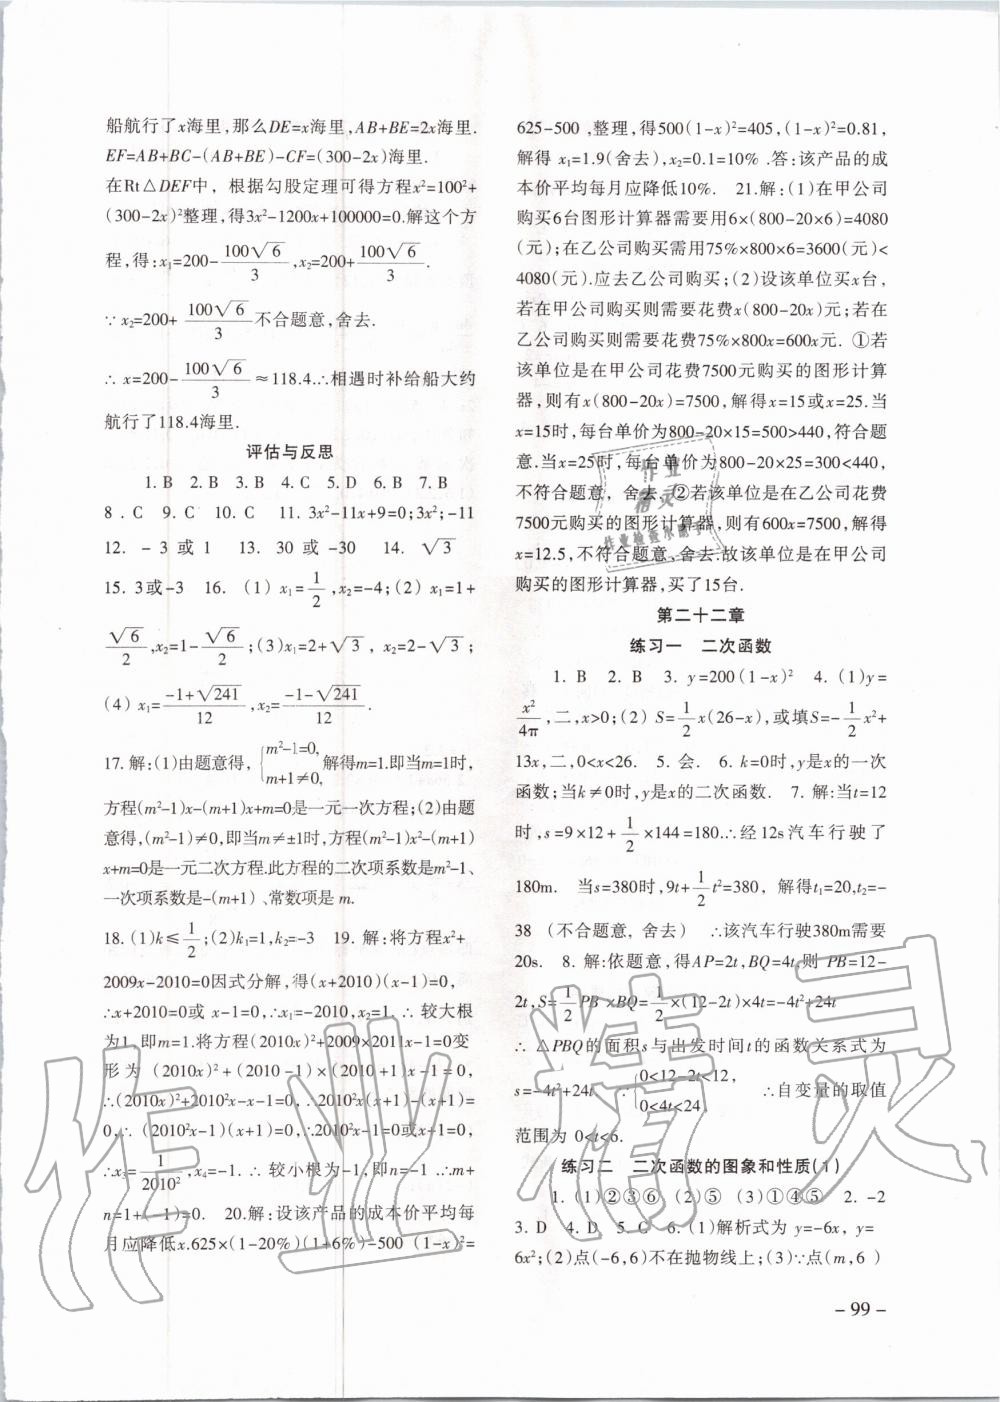 船航行了x海里,那么DE=x海里,AB+BE=2x海里.
EF=AB+BC-(AB+BE)-CF=(300-2x)海里.
在Rt△DEF中，根据勾股定理可得方程x²=100²+
(300-2x)²整理,得3x²-1200x+100000=0.解这个方
程,得:x₁=200-100√6/3,x₂=200+100√6/3.
∵x₂=200+100√6/3不合题意,舍去.
∴x=200-100√6/3≈118.4∴相遇时补给船大约
航行了118.4海里.
评估与反思
1. B 2. B 3. B 4. C 5. D 6. D 7. B
8 . C 9. C 10. C 11. 3x²-11x+9=0;3x²;-11
12. - 3 或 1 13. 30 或 -30 14. √3
15. 3或-3 16. (1) x₁=1/2,x₂=-4;(2) x₁=1+
√6/2,x₂=1-√6/2;(3)x₁=2+√3 , x₂=2-√3 ;
(4) x₁=(-1+√241)/12,x₂=(-1-√241)/12.
17. 解:(1)由题意得, {m²-1=0, m+1≠0,解得m=1.即当m=1时,
方程(m²-1)x-(m+1)x+m=0是一元一次方程;(2)由题
意得,(m²-1)≠0,即当m≠±1时,方程(m²-1)x²-(m+1)
x+m=0是一元二次方程.此方程的二次项系数是m²-1、
一次项系数是-(m+1)、常数项是 m.
18. (1)k≤1/2;(2)k₁=1,k₂=-3 19. 解:将方程x²+
2009x-2010=0因式分解,得(x+2010)(x-1)=0,
∴x+2010=0或 x-1=0,∴x₁=-2010,x₂=1, ∴ 较大根
为1, 即m=1.将方程 (2010x)²+2009×2011x-1=0变
形为 (2010x)²+(2010 -1)×(2010 +1)x-1 =0,
∴(2010x)²+2010²x-x-1=0,∴2010²x(x+1)-(x+1)=
0,∴ (2010²x-1)(x+1)=0,∴2010²x-1=0或x+1=0,
∴x₃=1/2010²,x₄=-1. ∴ 较小根为-1,即n=-1 .∴m+
n=1+(-1)=0. 20.解:设该产品的成本价平均每
月应降低x.625×(1-20%)(1+6%)-500 (1-x)²=
625-500 ,整理,得500(1-x)²=405,(1-x)²=0.81,
解得 x₁=1.9(舍去),x₂=0.1=10% .答:该产品的成
本价平均每月应降低10%. 21.解:(1)在甲公司
购买6台图形计算器需要用6×(800-20×6)=4080
(元);在乙公司购买需用75%×800×6=3600(元)<
4080(元).应去乙公司购买;(2)设该单位买x台,
若在甲公司购买则需要花费x(800-20x)元;若在
乙公司购买则需要花费75%×800x=600x元. ①若
该单位是在甲公司花费7500元购买的图形计算
器,则有x(800-20x)=7500,解得x=15或x=25.当
x=15时,每台单价为800-20×15=500>440,符合题
意.当x=25时,每台单价为800-20×25=300<440,
不符合题意，舍去.②若该单位是在乙公司花费
7500元购买的图形计算器,则有600x=7500,解得
x=12.5,不符合题意,舍去.故该单位是在甲公司
购买的图形计算器,买了15台.
第二十二章
练习一 二次函数
1. B 2. B 3. y=200(1-x)² 4. (1)y=
x²/4π,二,x>0;(2) S=1/2x(26-x),或填S=-1/2x²+
13x,二,0<x<26. 5. 会. 6. k=0时,y是x的一次
函数;当k≠0时,y是x的二次函数. 7. 解:当t=12
时,s=9×12+1/2×144=180.∴经12s汽车行驶了
180m. 当s=380时,9t+1/2t²=380，解得t₁=20,t₂=-
38 (不合题意, 舍去) ∴该汽车行驶380m需要
20s. 8. 解:依题意,得AP=2t,BQ=4t,则 PB=12-
2t,S=1/2PB×BQ=1/2×(12-2t)×4t=-4t²+24t
∴△PBQ的面积s与出发时间t的函数关系式为
s=-4t²+24t ∵{0<12-2t<12, 0<4t<24 ∴自变量的取值
范围为 0<t<6.
练习二 二次函数的图象和性质(1)
1. (1)②③⑥ (2)⑤ (3)①④⑤ 2. -2
3. D 4. D 5. C 6. (1)解析式为 y=-6x, y=
6x²;(2)点(-6,6)不在抛物线上;(3)∵点(m,6 )
- 99 -
作业
精灵
作业检查小助手
作业精灵